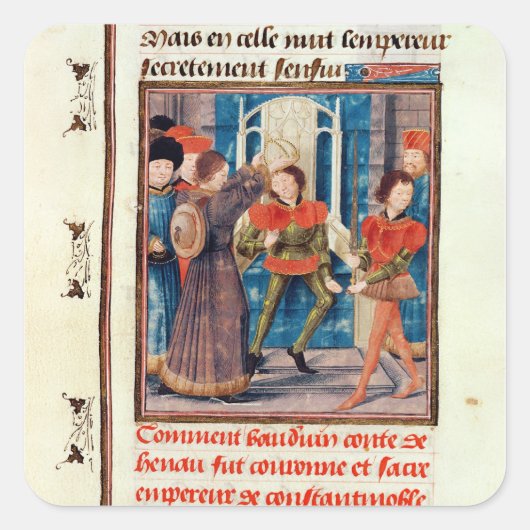 Mais en celle nuit lempereur
secretement senfui
Comment bauduin conte de
henau fut couronne et sacre
empereur de constantinoble